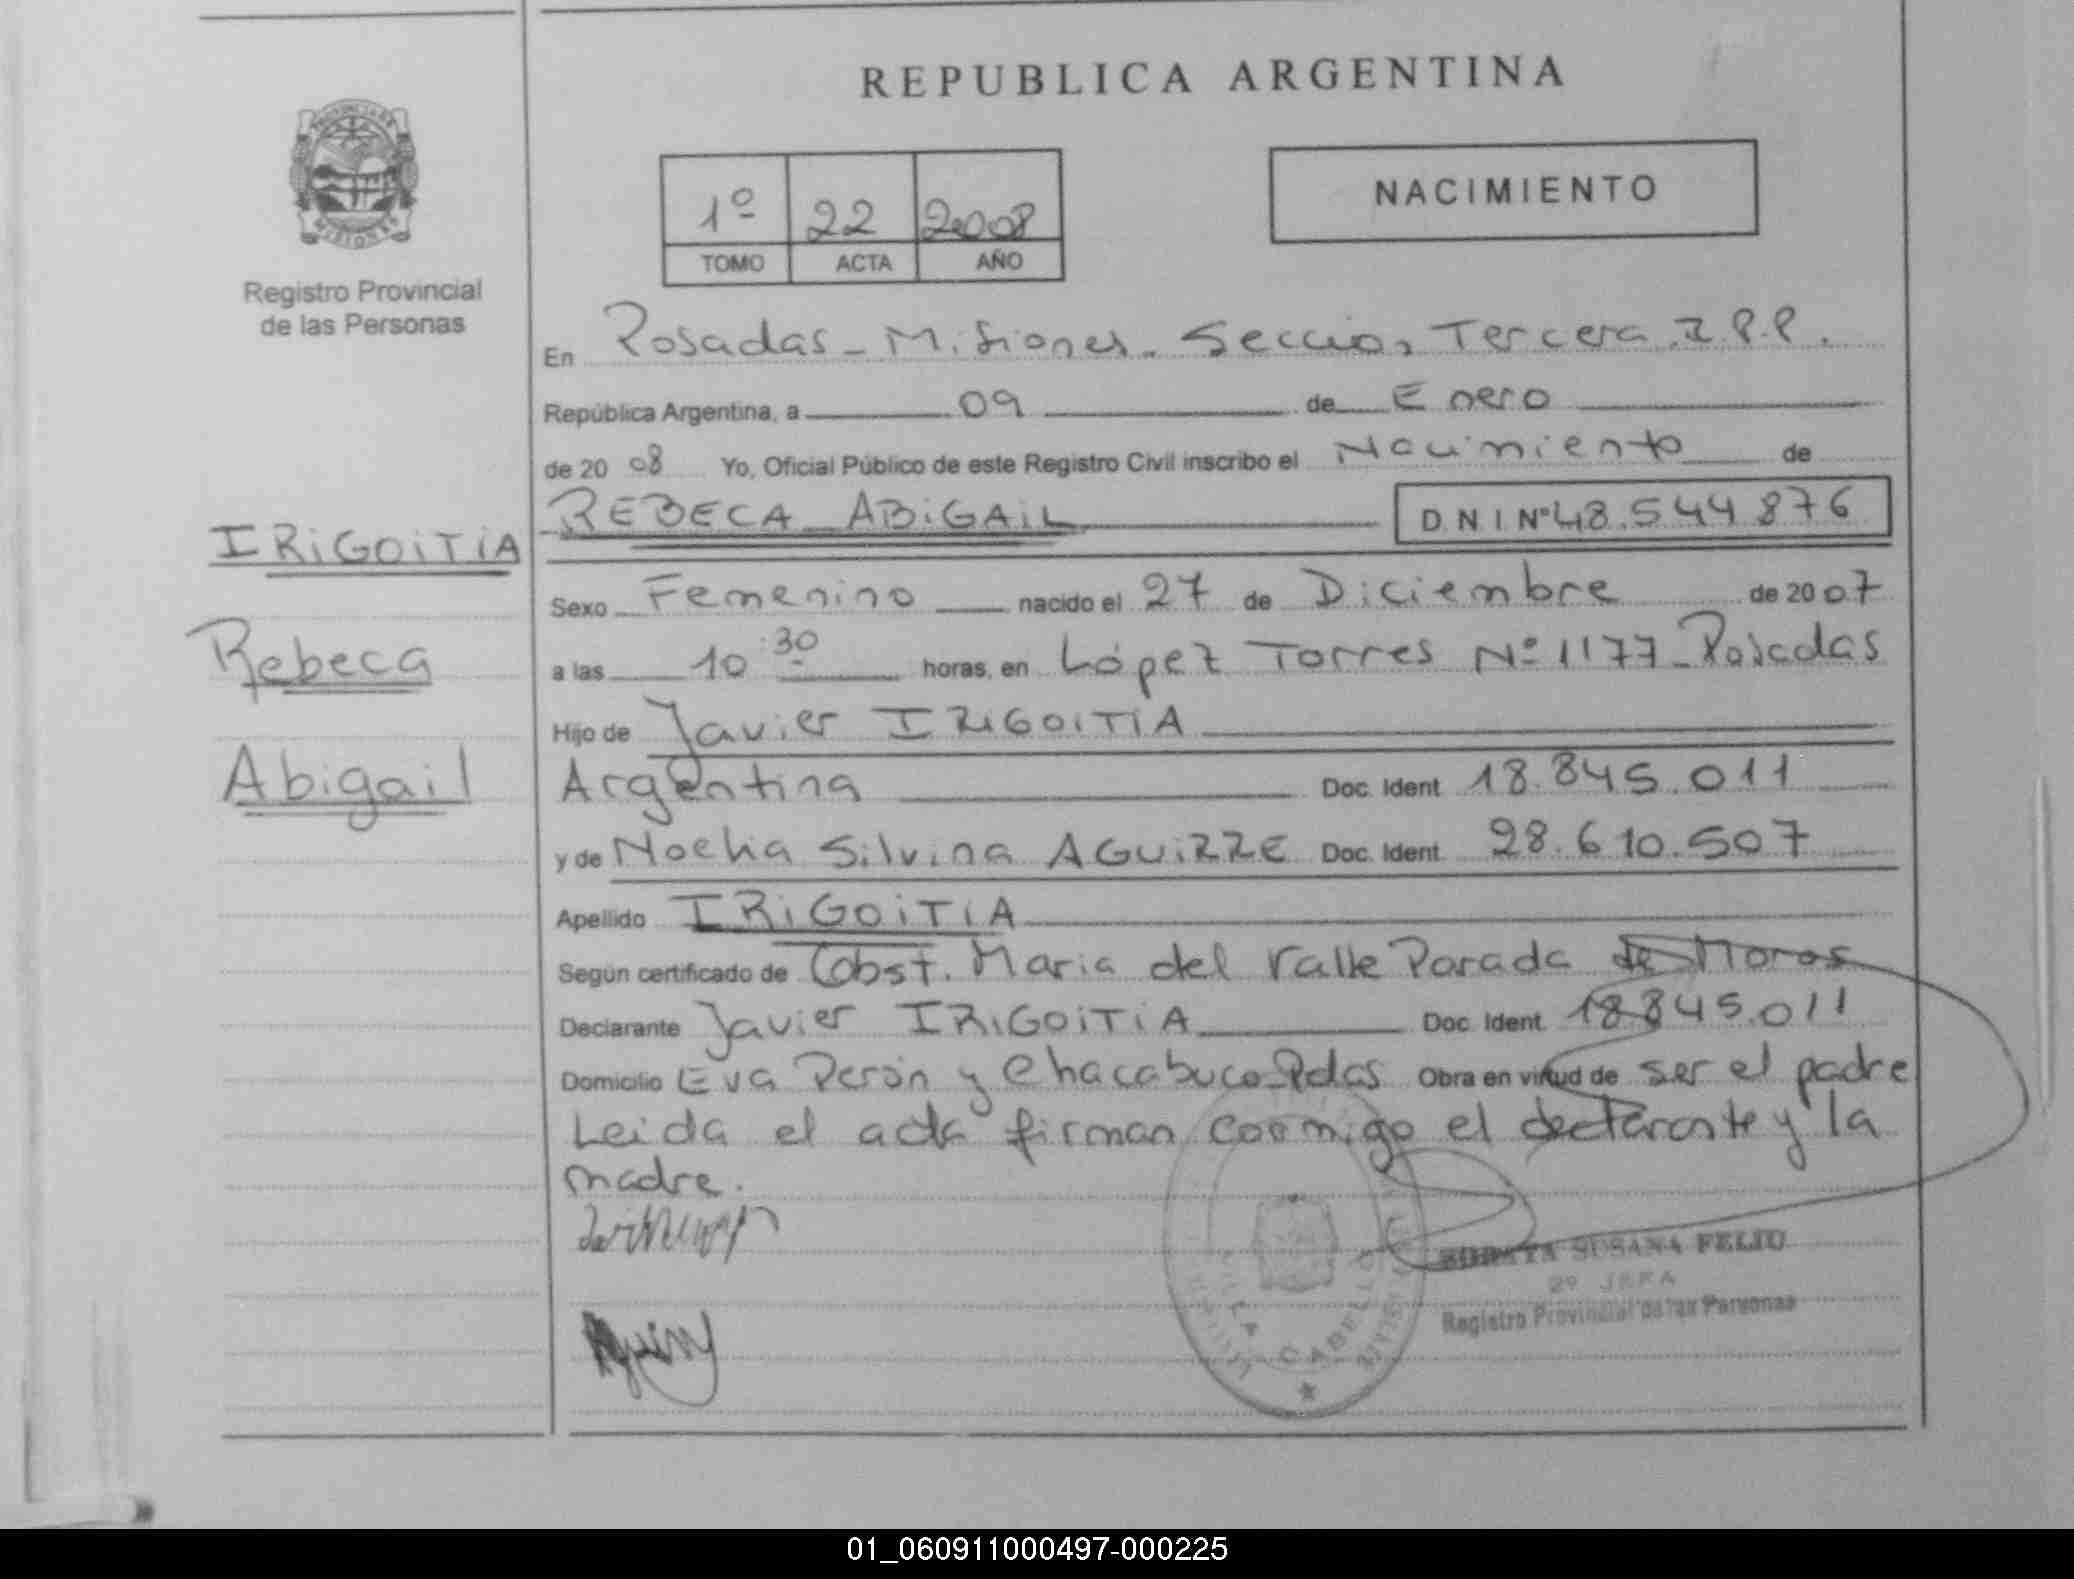 REPUBLICA ARGENTINA
PROVINCIA DE
MISIONES
Registro Provincial
de las Personas
1º 22 2008
TOMO ACTA AÑO
NACIMIENTO
En Posadas - Misiones. Seccion Tercera. R.P.P.
República Argentina, a 09 de Enero
de 20 08 Yo, Oficial Público de este Registro Civil inscribo el Nacimiento de
REBECA ABIGAIL D N I Nº 48.544.876
IRIGOITIA
Rebeca
Abigail
Sexo Femenino nacido el 27 de Diciembre de 20 07
a las 10 30 horas, en López Torres Nº 1177 - Posadas
Hijo de Javier IRIGOITIA
Argentina Doc. Ident 18.845.011
y de Noelia Silvina AGUIRRE Doc. Ident. 28.610.507
Apellido IRIGOITIA
Según certificado de Obst. Maria del Valle Parada de Moros
Declarante Javier IRIGOITIA Doc. Ident. 18.845.011
Domicilio Eva Perón y Chacabuco - Pdas Obra en virtud de ser el padre
Leida el acta firman conmigo el declarante y la
madre.
SUSANA FELIU
2º JEFA
Registro Provincial de las Personas
01_060911000497-000225